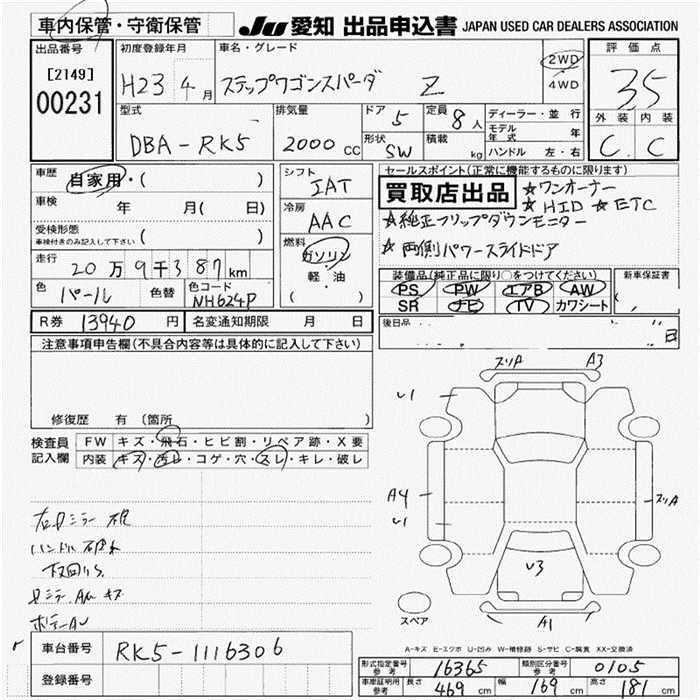 車内保管・守衛保管
JU 愛知 出品申込書 JAPAN USED CAR DEALERS ASSOCIATION
出品番号
[2149]
00231
初度登録年月
H23年4月
車名・グレード
ステップワゴンスパーダ Z
2WD
・
4WD
評価点
35
外装 内装
C C
型式
DBA-RK5
排気量
2000 CC
ドア 5
形状 SW
定員 8 人
積載 kg
ディーラー・並行
モデル年式 年
ハンドル 左・右
車歴
自家用・( )
車検 年 月( 日)
受検形態
車検付きのみ記入して下さい ( )
走行
20万9千387km
色 パール
色替
色コード
NH624P
シフト
IAT
冷房
AAC
燃料
ガソリン
・
軽・油
( )
セールスポイント(正常に機能するものに限ります)
買取店出品
☆ワンオーナー
☆HID ☆ETC
☆純正フリップダウンモニター
☆両側パワースライドドア
装備品(純正品に限り○をつけてください)
PS PW エアB AW
SR ナビ TV カワシート
新車保証書
後日品
R券 13940 円
名変通知期限 月 日
注意事項申告欄(不具合内容等は具体的に記入して下さい)
修復歴 有 (箇所 )
検査員
記入欄
FW キズ・飛石・ヒビ割・リペア跡・X要
内装 キズ・汚レ・コゲ・穴・スレ・キレ・破レ
スリA A3
U1
A4
U1
スリA
U3
A1
スペア
A-キズ E-エクボ U-凹み W-補修跡 S-サビ C-腐食 XX-交換済
車台番号 RK5-1116306
登録番号
形式指定番号
参考
16365
類別区分番号
参考
0105
車庫証明用
参考
長さ 469 cm
幅 169 cm
高さ 181 cm